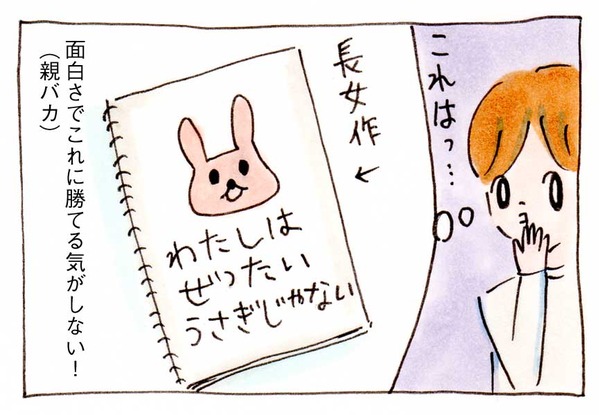 これはっ…
長女作
わたしは
ぜったい
うさぎじゃない
面白さでこれに勝てる気がしない！
（親バカ）